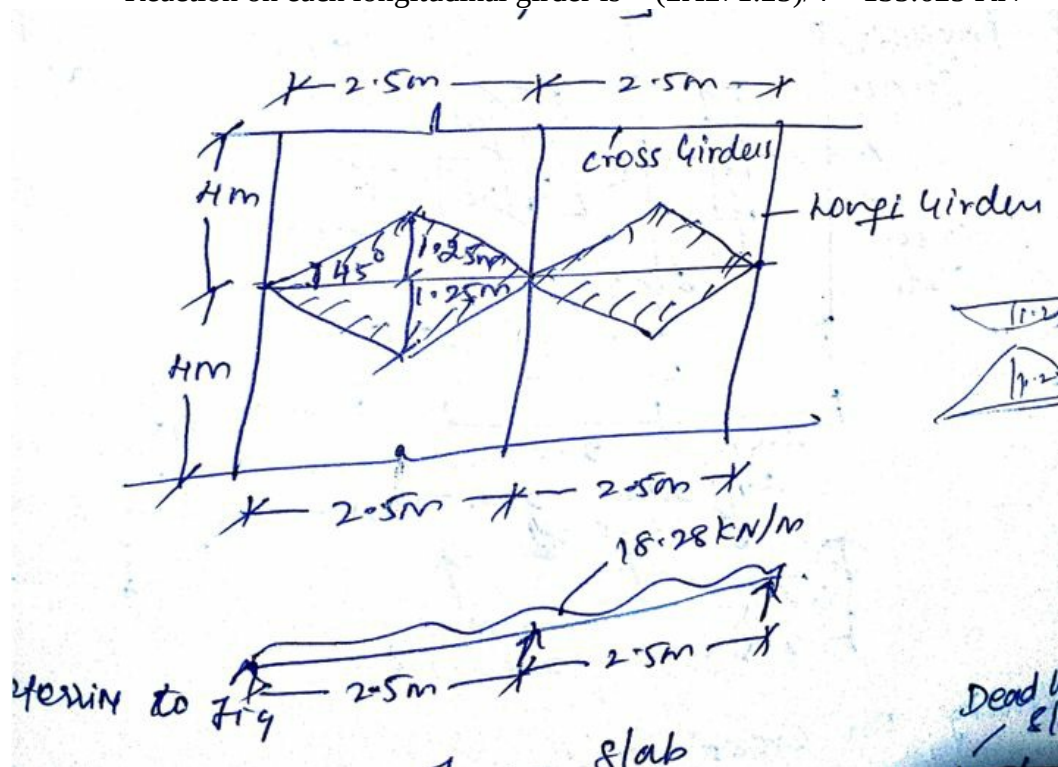 2.5m 2.5m
cross Girders
4m
Longi Girder
45° 1.25m
1.25m
4m
2.5m 2.5m
18.28 KN/m
2.5m 2.5m
to Fig
Dead
Slab